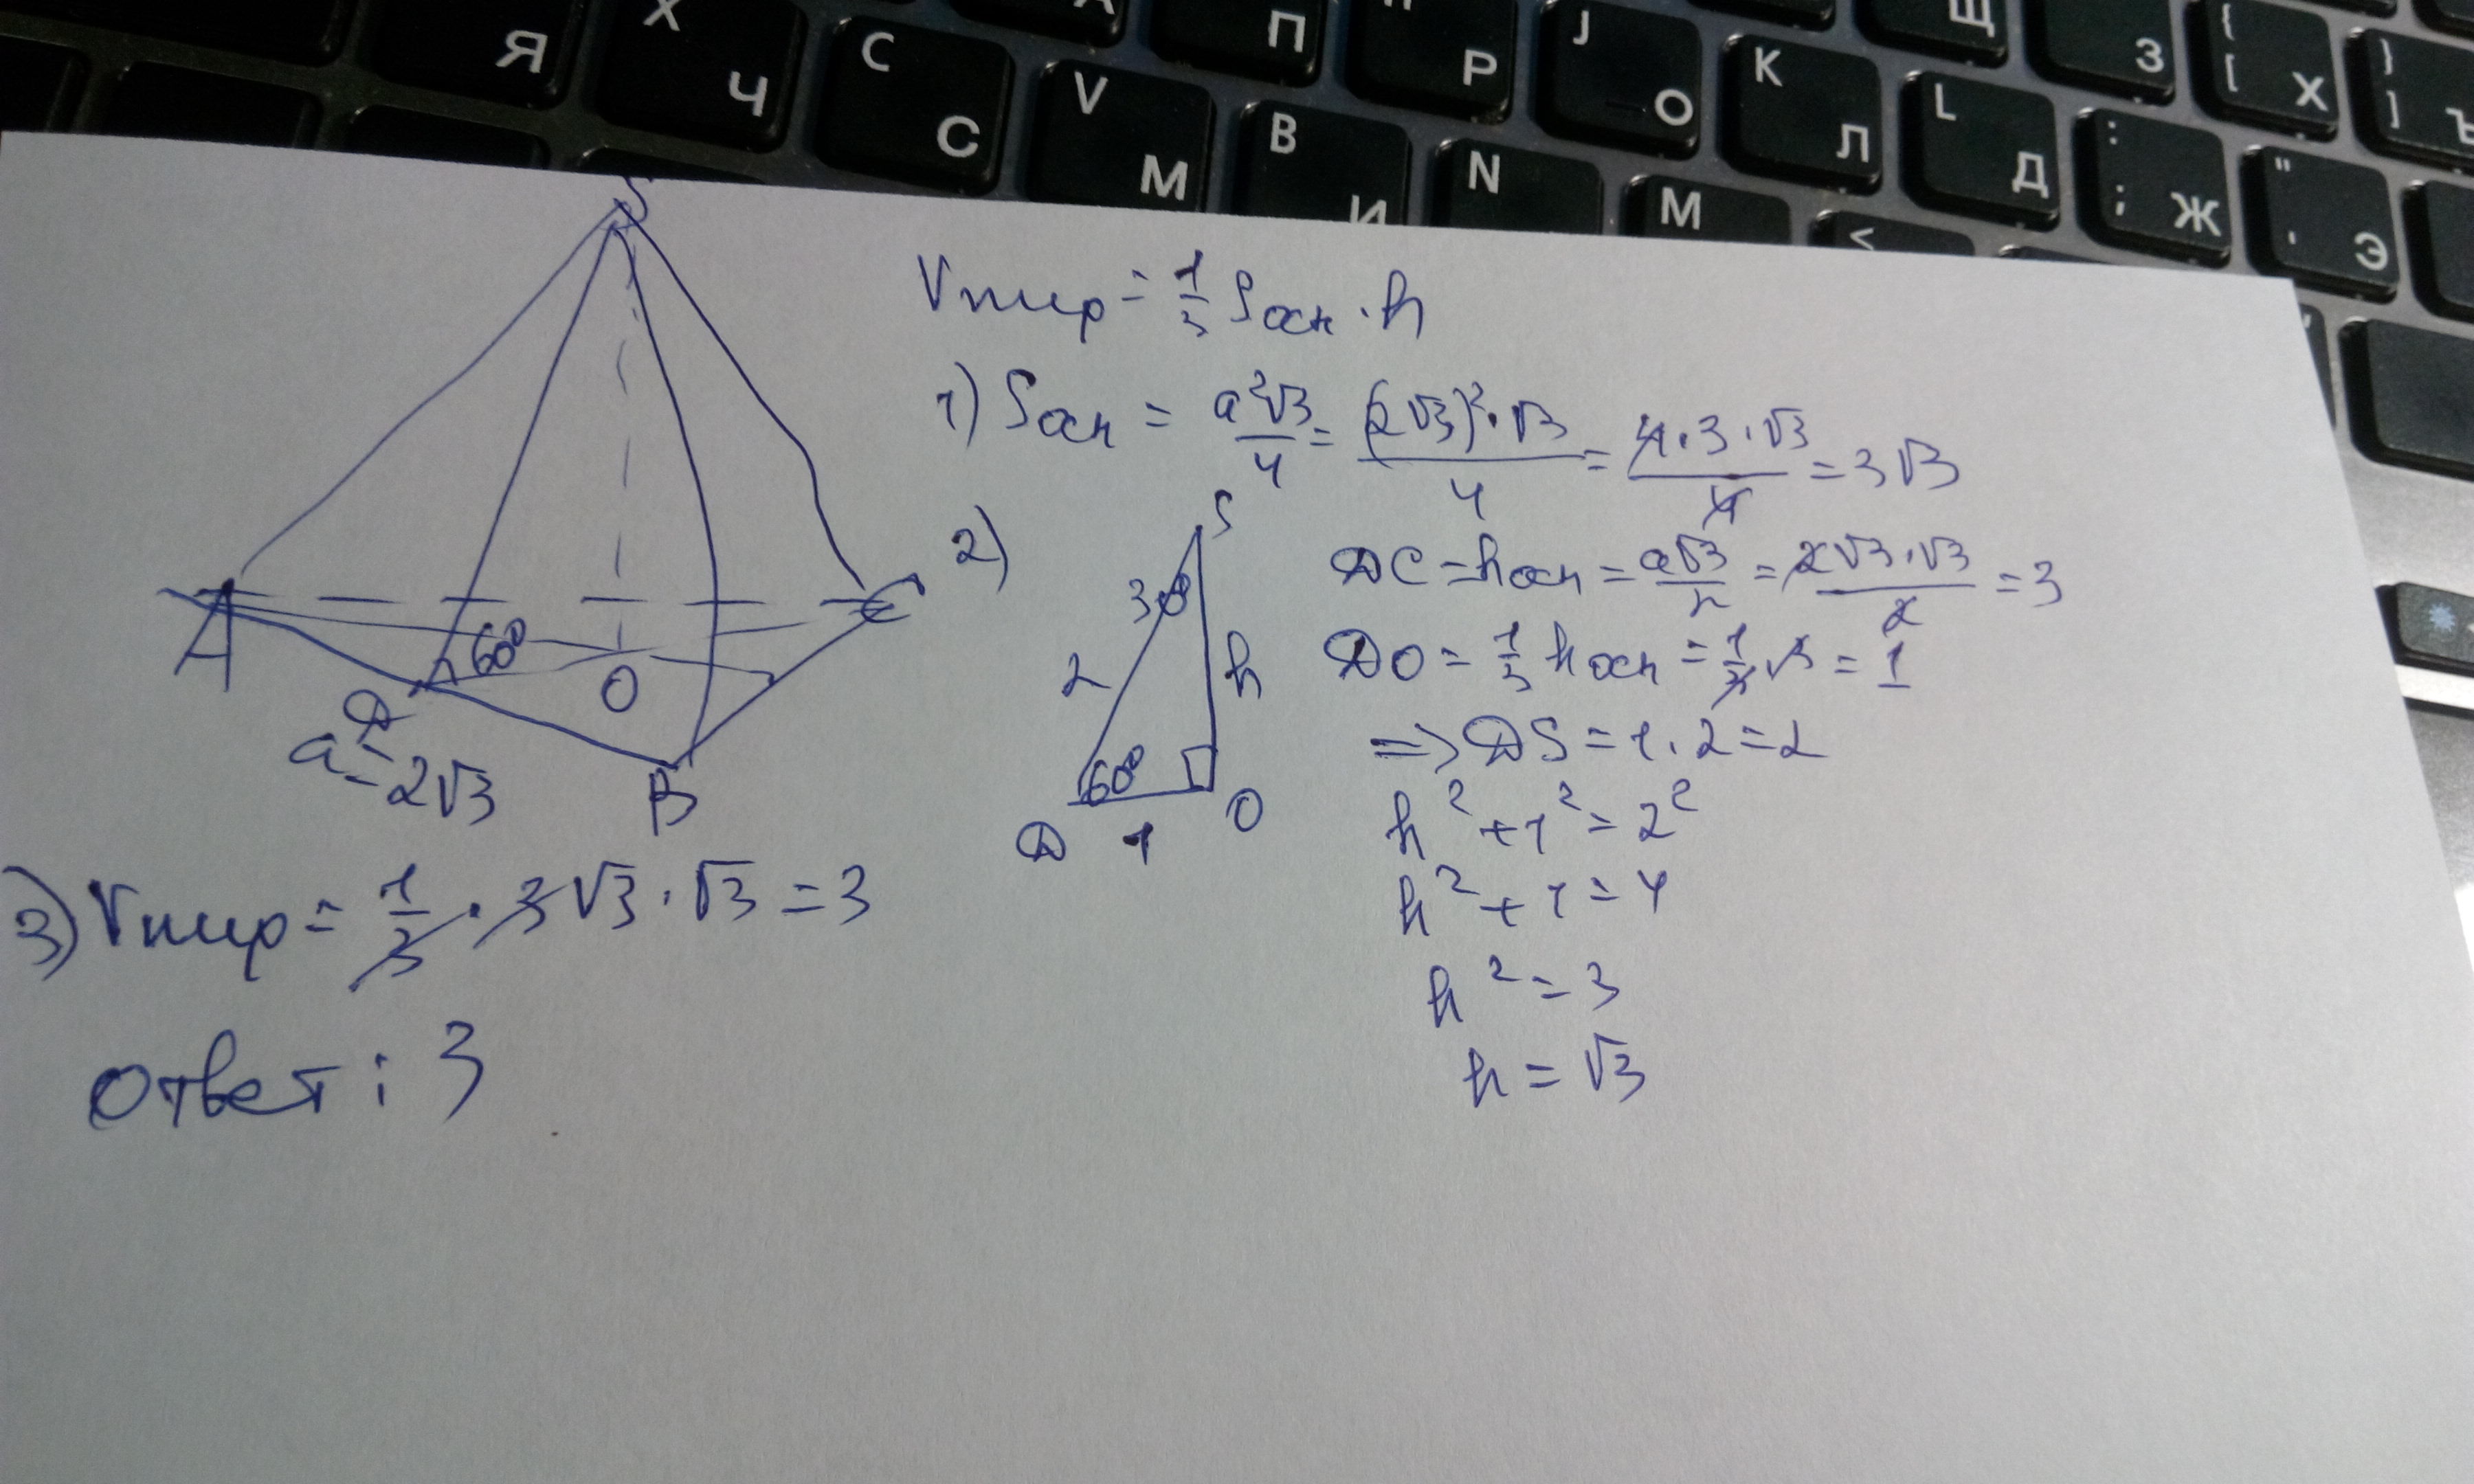 Я
X Ч
C С
V М
П
Р
B И
J О
N
K Л
M
Щ
L Д
<
З
: ; Ж
{ [ Х
" ' Э
} ] Ъ
S
A
B
C
D
O
60°
a = 2√3
Vпир = 1/3 Sосн · h
1) Sосн = a²√3/4 = (2√3)²·√3/4 = 4·3·√3/4 = 3√3
2)
S
30°
2
h
60°
D 1 O
DC = hосн = a√3/2 = 2√3·√3/2 = 3
DO = 1/3 hосн = 1/3·3 = 1
=> DS = 1·2 = 2
h² + 1² = 2²
h² + 1 = 4
h² = 3
h = √3
3) Vпир = 1/3 · 3√3 · √3 = 3
Ответ: 3